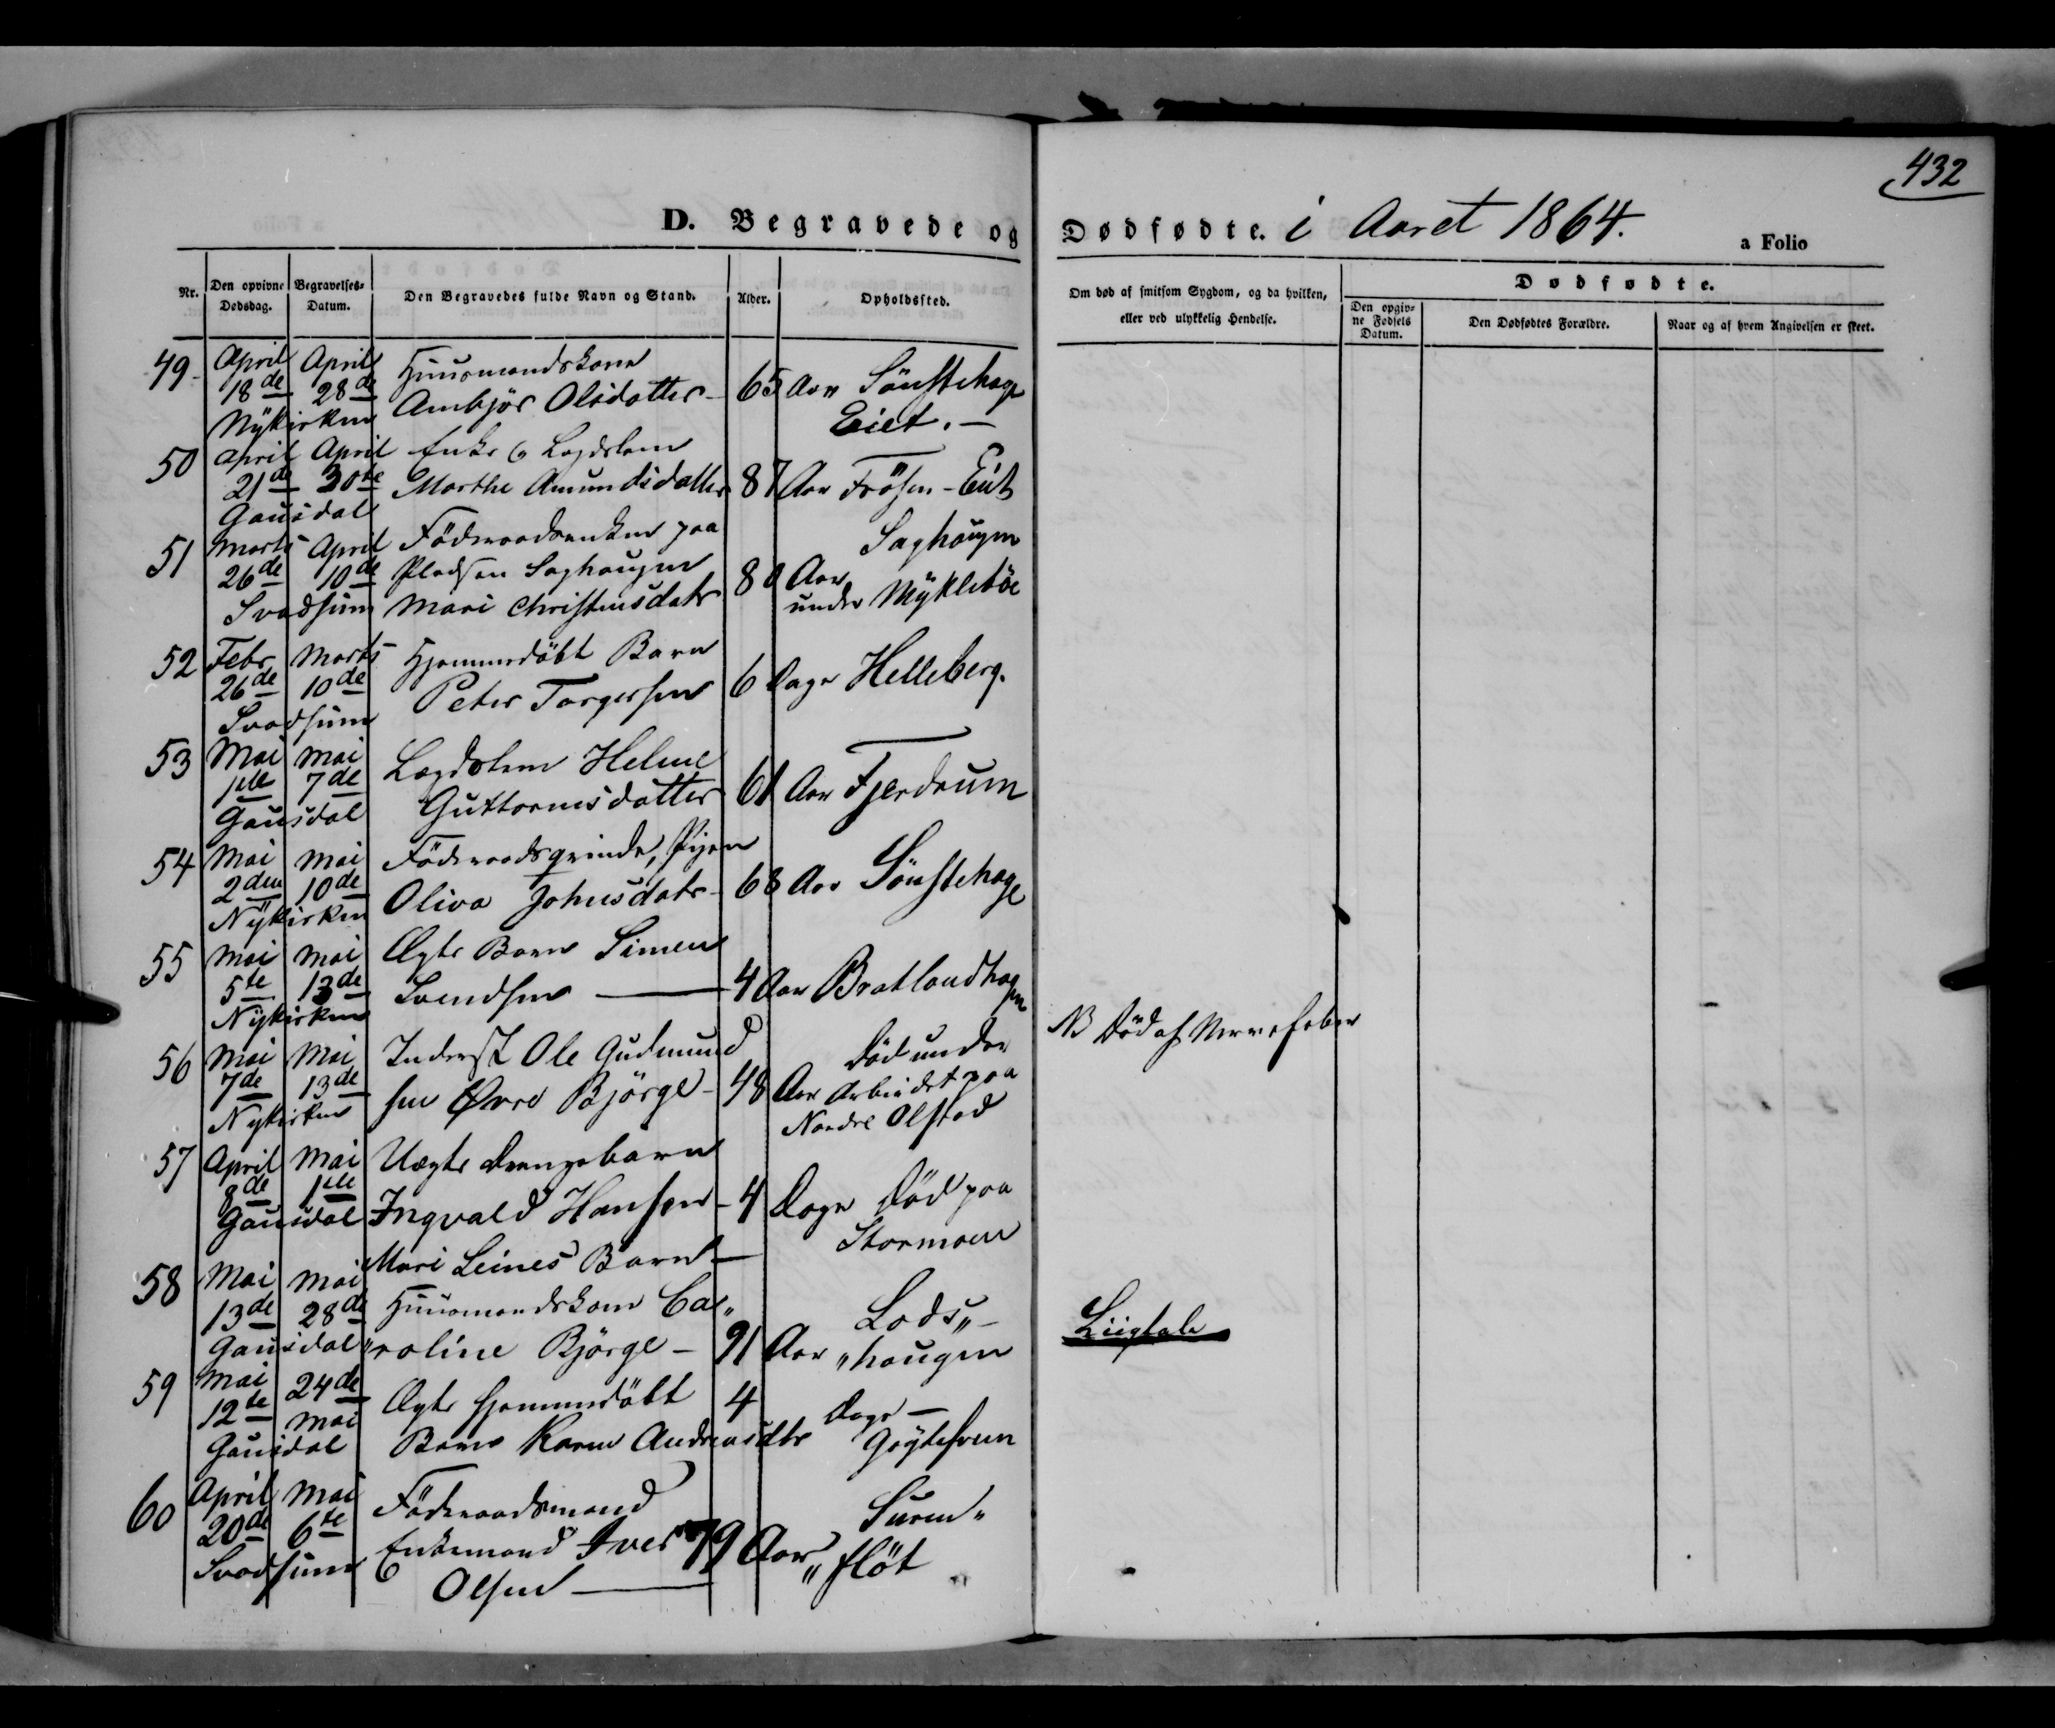 432
D. Begravede og Dødfødte. i Aaret 1864.
a Folio
Nr.
Den opgivne Dødsdag.
Begravelses-Datum.
Den Begravedes fulde Navn og Stand.
Alder.
Opholdssted.
Om død af smitsom Sygdom, og da hvilken, eller ved ulykkelig Hendelse.
Dødfødte.
Den opgivne Fødsels Datum.
Den Dødfødtes Forældre.
Naar og af hvem Angivelsen er skeet.
49 April April Huusmandskone
18de 28de Ambjör Olsdatter 65 Aar Sönstehage
Nÿkirken Eiet.
50 April April Enke og Lægdslem
21de 30te Marthe Amundsdatter 87 Aar Frösen-Eiet
Gausdal
51 Marts April Föderaadsenken paa Saghaugen
26de 10de Pladsen Saghaugen 80 Aar
Svadsum Mari Christensdatr under Mÿklebÿe
52 Febr Marts Hjemmedöbt Barn
26de 10de Peter Torgersen 6 Dage Helleberg.
Svadsum
53 Mai Mai Lægdslem Helene
1ste 7de Guttormsdatter 61 Aar Fjerdrum
Gausdal
54 Mai Mai Föderaadsqvinde, Pigen
2den 10de Oliva Johnsdatr 68 Aar Sönstehage
Nÿkirken
55 Mai Mai Ægte Barn Simen
5te 13de Svendsen 4 Aar Bratlandhagen
Nÿkirken
56 Mai Mai Inderst Ole Gudmund død under
7de 13de sen Øvre Björge 48 Aar Arbeidet paa
Nykirken Nordre Olstad
NB Död af Nervefeber
57 April Mai Uægte Drengebarn
8de 1ste Ingvald Hansen 4 Dage Död paa
Gausdal Stormoen
Mari Leines Barn
58 Mai Mai Huusmandskone Ca„ Lods„
13de 28de
Gausdal „roline Björge 91 Aar „haugen
Liigtale
59 Mai 24de Ægte hjemmedöbt 4 Dage
12te Mai Barn Karen Andreasdtr
Gausdal
60 April Mai Föderaadsmand Suren„
20de 6te Enkemand Iver 79 Aar „flöt
Svadsum Olsen